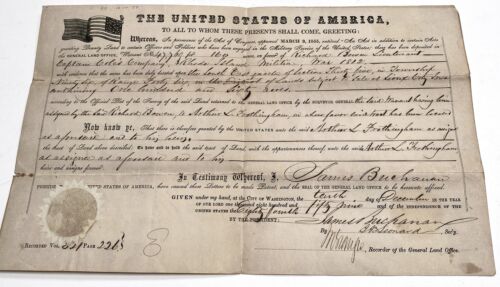 THE UNITED STATES OF AMERICA,
TO ALL TO WHOM THESE PRESENTS SHALL COME, GREETING:
Whereas, In pursuance of the Act of Congress, approved MARCH 3, 1855, entitled "An Act in addition to certain Acts
granting Bounty Land to certain Officers and Soldiers who have been engaged in the Military Service of the United States," there has been deposited in the
GENERAL LAND OFFICE, Warrant No. for 160 acres, in favor of Richard Bowen Lieutenant
Captain Company, Rhode Island Militia, War 1812
with evidence that the same has been duly located upon the South East quarter of Section Thirty five, in Township
of Range Forty six, in the District of Lands subject to sale at Sioux City Iowa
containing One hundred and Sixty acres.
according to the Official Plat of the Survey of the said Land returned to the GENERAL LAND OFFICE by the SURVEYOR GENERAL the said Warrant having been
assigned by the said Richard Bowen to Arthur L. Frothingham in whose favor said tract has been located
Now know ye, That there is therefore granted by the UNITED STATES unto the said Arthur L. Frothingham as assignee
as aforesaid and to his heirs
the tract of Land above described: To have and to hold the said tract of Land, with the appurtenances thereof, unto the said Arthur L. Frothingham
as assignee as aforesaid and to his
heirs and assigns forever.
In Testimony Whereof, I, James Buchanan
PRESIDENT OF THE UNITED STATES OF AMERICA, have caused these Letters to be made Patent, and the SEAL OF THE GENERAL LAND OFFICE to be hereunto affixed.
GIVEN under my hand, at the CITY OF WASHINGTON, the tenth day of December IN THE YEAR
OF OUR LORD one thousand eight hundred and fifty nine AND OF THE INDEPENDENCE OF THE
UNITED STATES THE Eighty fourth
BY THE PRESIDENT: James Buchanan
By Leonard Sec'y.
Recorder of the General Land Office.
RECORDED, VOL. PAGE